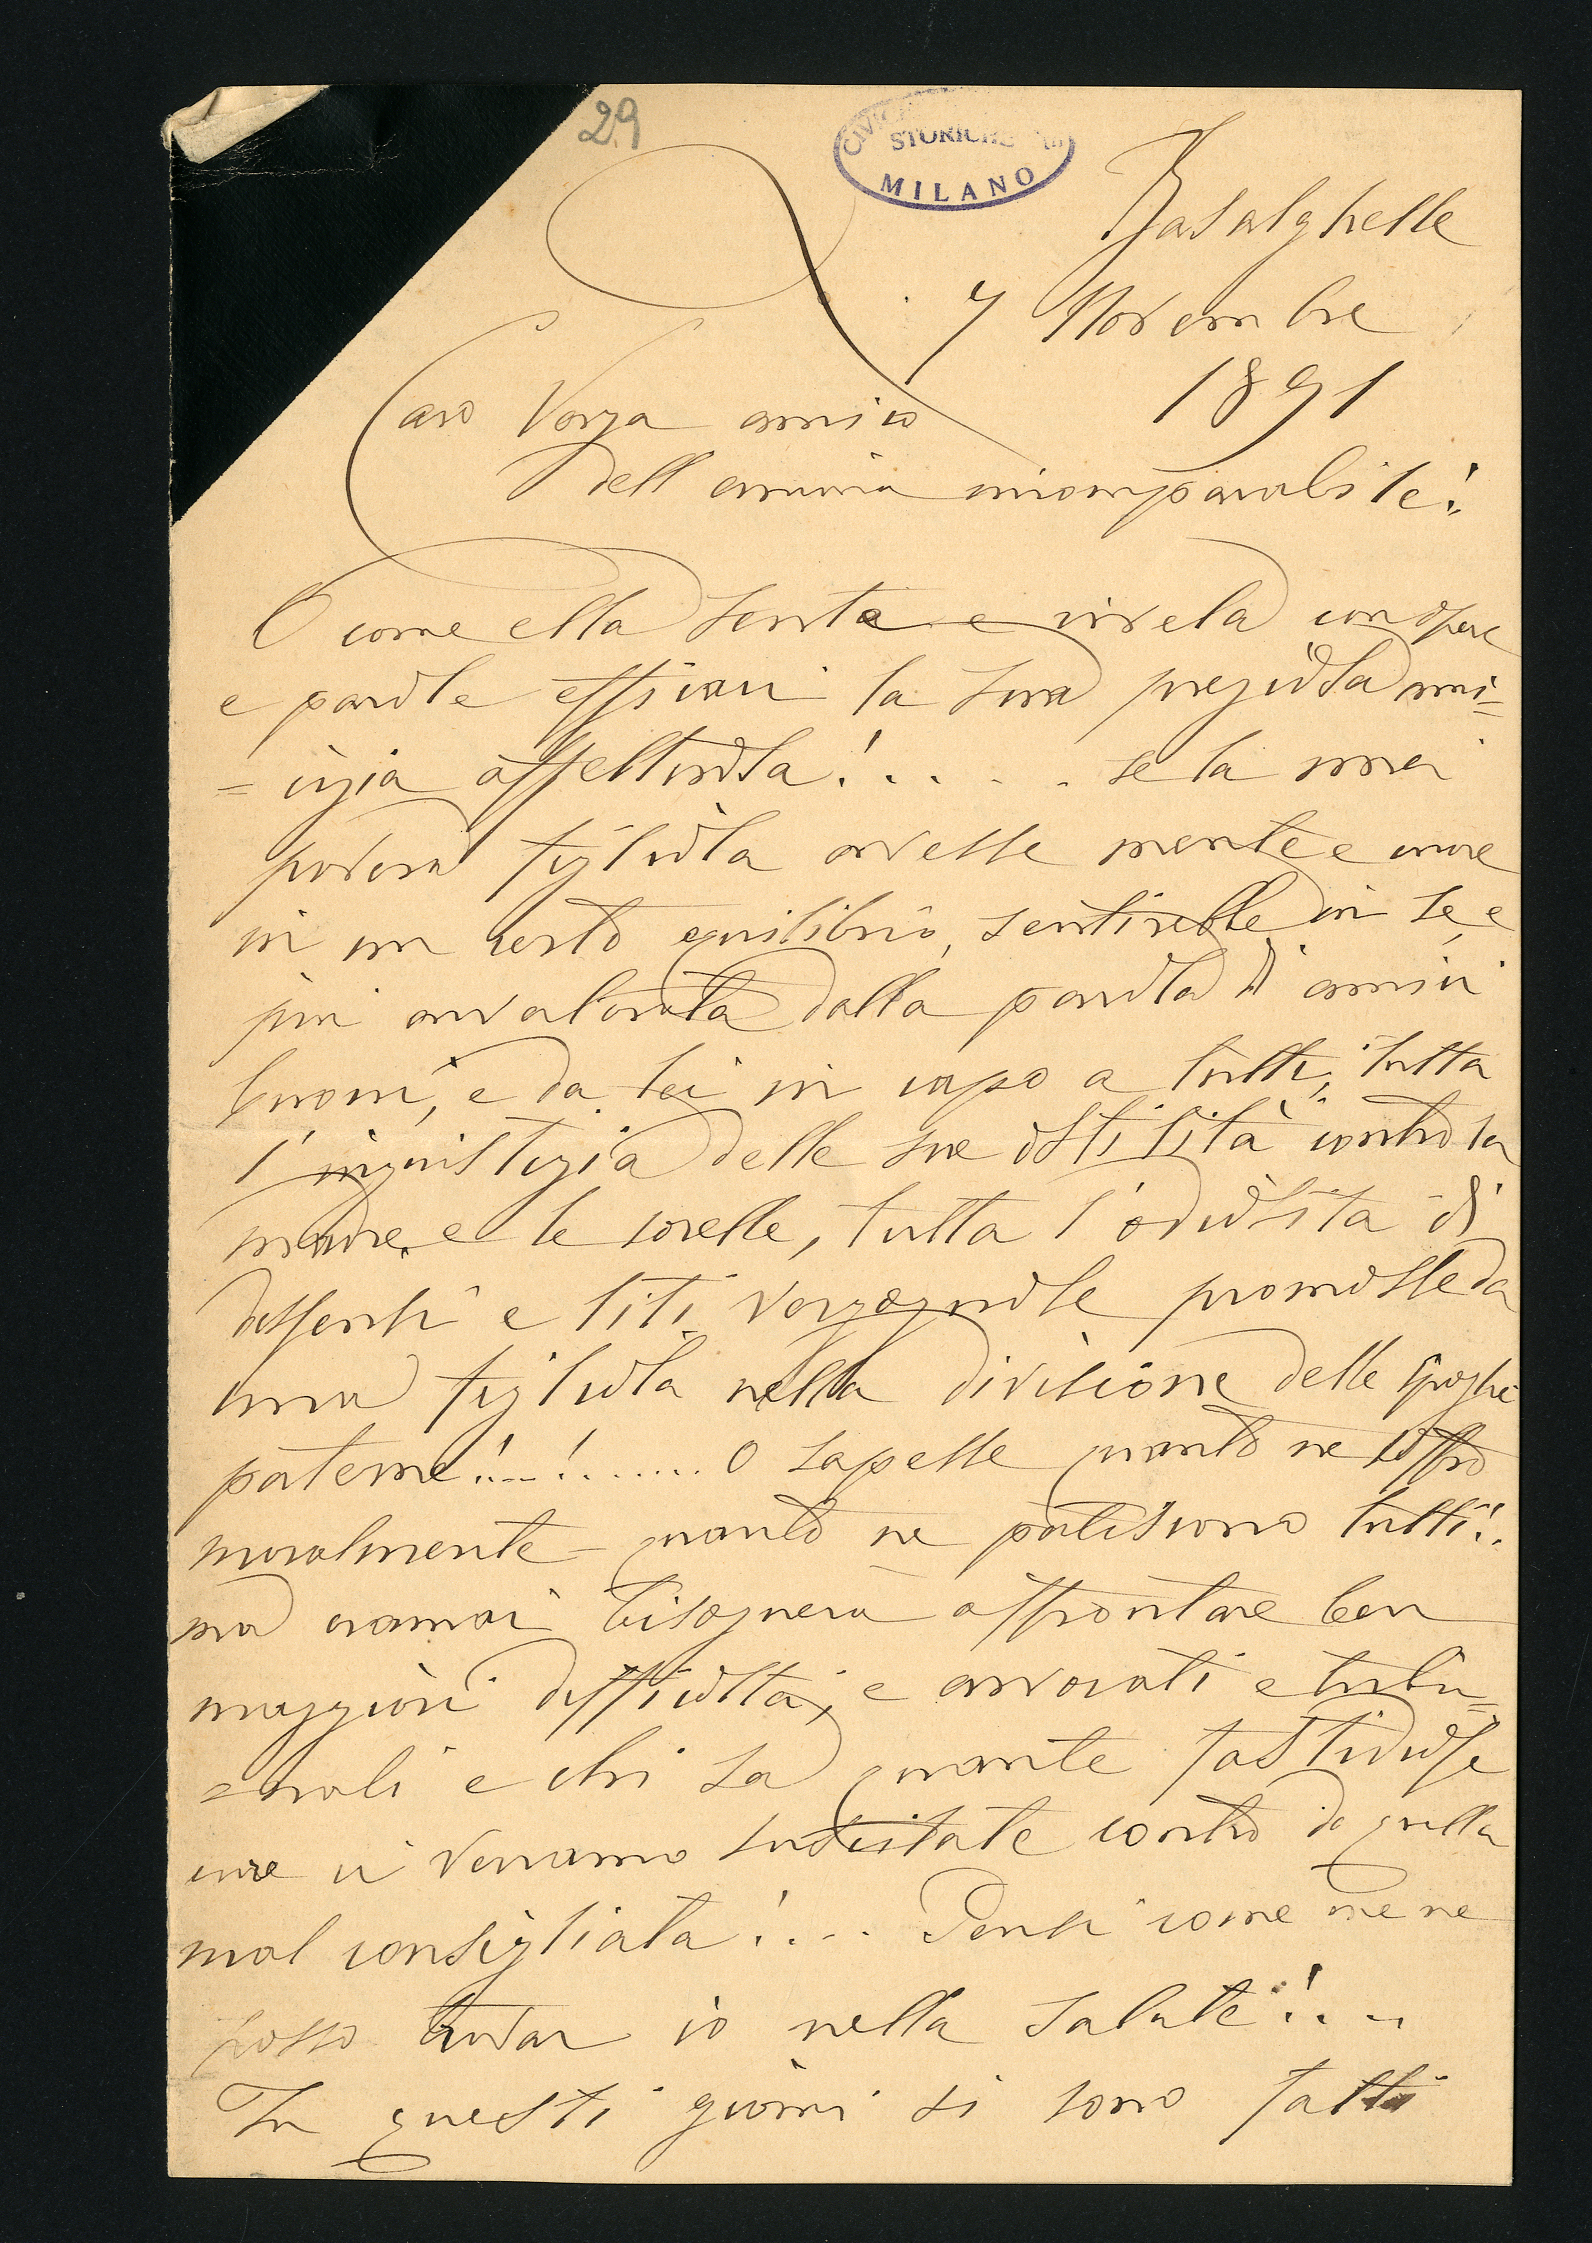 29
CIVICHE
STORICHE
MILANO
Basalghelle
7 Novembre
1891
Caro Vonza amico
dell'anima incomparabile!
O come ella senta e rivela con opere
e parole efficaci la sua preziosa ami=
=cizia affettuosa!..... se la mia
povera figliola avesse mente e cuore
in un certo equilibrio, sentirebbe in se, e
più avvalorata dalla parola di amici
buoni, e da lei in capo a tutti, tutta
l'ingiustizia delle sue ostilità contro la
madre e le sorelle, tutta l'odiosità di
dissensi e liti vergognose promosse da
una figliola nella divisione delle spoglie
paterne!..!....... O sapesse quanto ne soffro
moralmente - quanto ne patiscono tutti!.
ma oramai bisognerà affrontare ben
maggiori difficoltà, e avvocati e tribu=
=nali e chi sa quante fastidiose
cure ci verranno suscitate contro da quella
mal consigliata!... Pensi come me ne
posso trovar io nella salute!...
In questi giorni si sono fatti